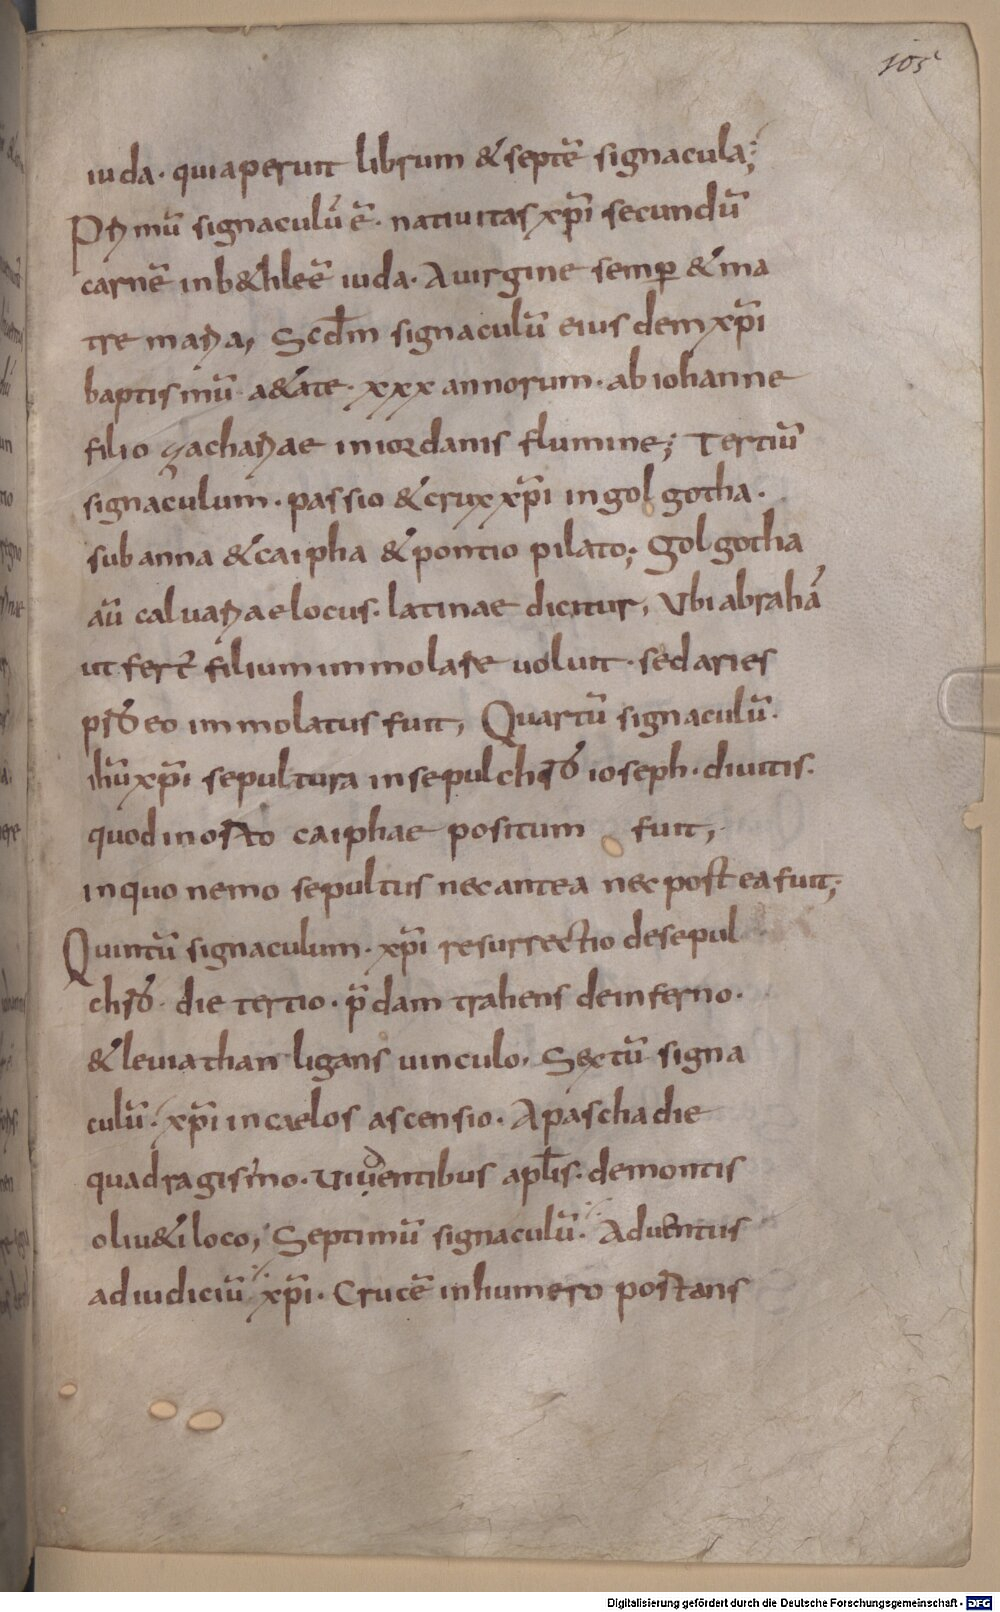 105
iuda· qui aperuit librum & septē signacula;
Primū signaculū ē· natiuitas xp̄i secundū
carnē in b&hleē iuda· A uirgine semp̄ & ma
tre maria, Scd̄m signaculū eiusdem xp̄i
baptismū a&ate· xxx annorum· ab iohanne
filio zachariae in iordanis flumine; Tertiū
signaculum· passio & crux xp̄i in golgotha·
sub anna & caipha & pontio pilato; Golgotha
aū caluariae locus· latinae dicitur, Ubi abrahā
ut fert̄ filium immolare uoluit· sed aries
pro eo immolatus fuit, Quartū signaculū·
ihū xp̄i sepultura in sepulchro ioseph· diuitis·
quod in orto caiphae positum fuit,
in quo nemo sepultus nec antea nec postea fuit;
Quintū signaculum· xp̄i resurrectio de sepul
chro· die tertio· p̄dam trahens de inferno·
& leuiathan ligans uinculo· Sextū signa
culū· xp̄i in caelos ascensio· A pascha die
quadragisimo· uidentibus apl̄is· de montis
oliu&i loco, Septimū signaculū· Aduentus
ad iudiciū xp̄i· Crucē in humero portans
Digitalisierung gefördert durch die Deutsche Forschungsgemeinschaft - DFG